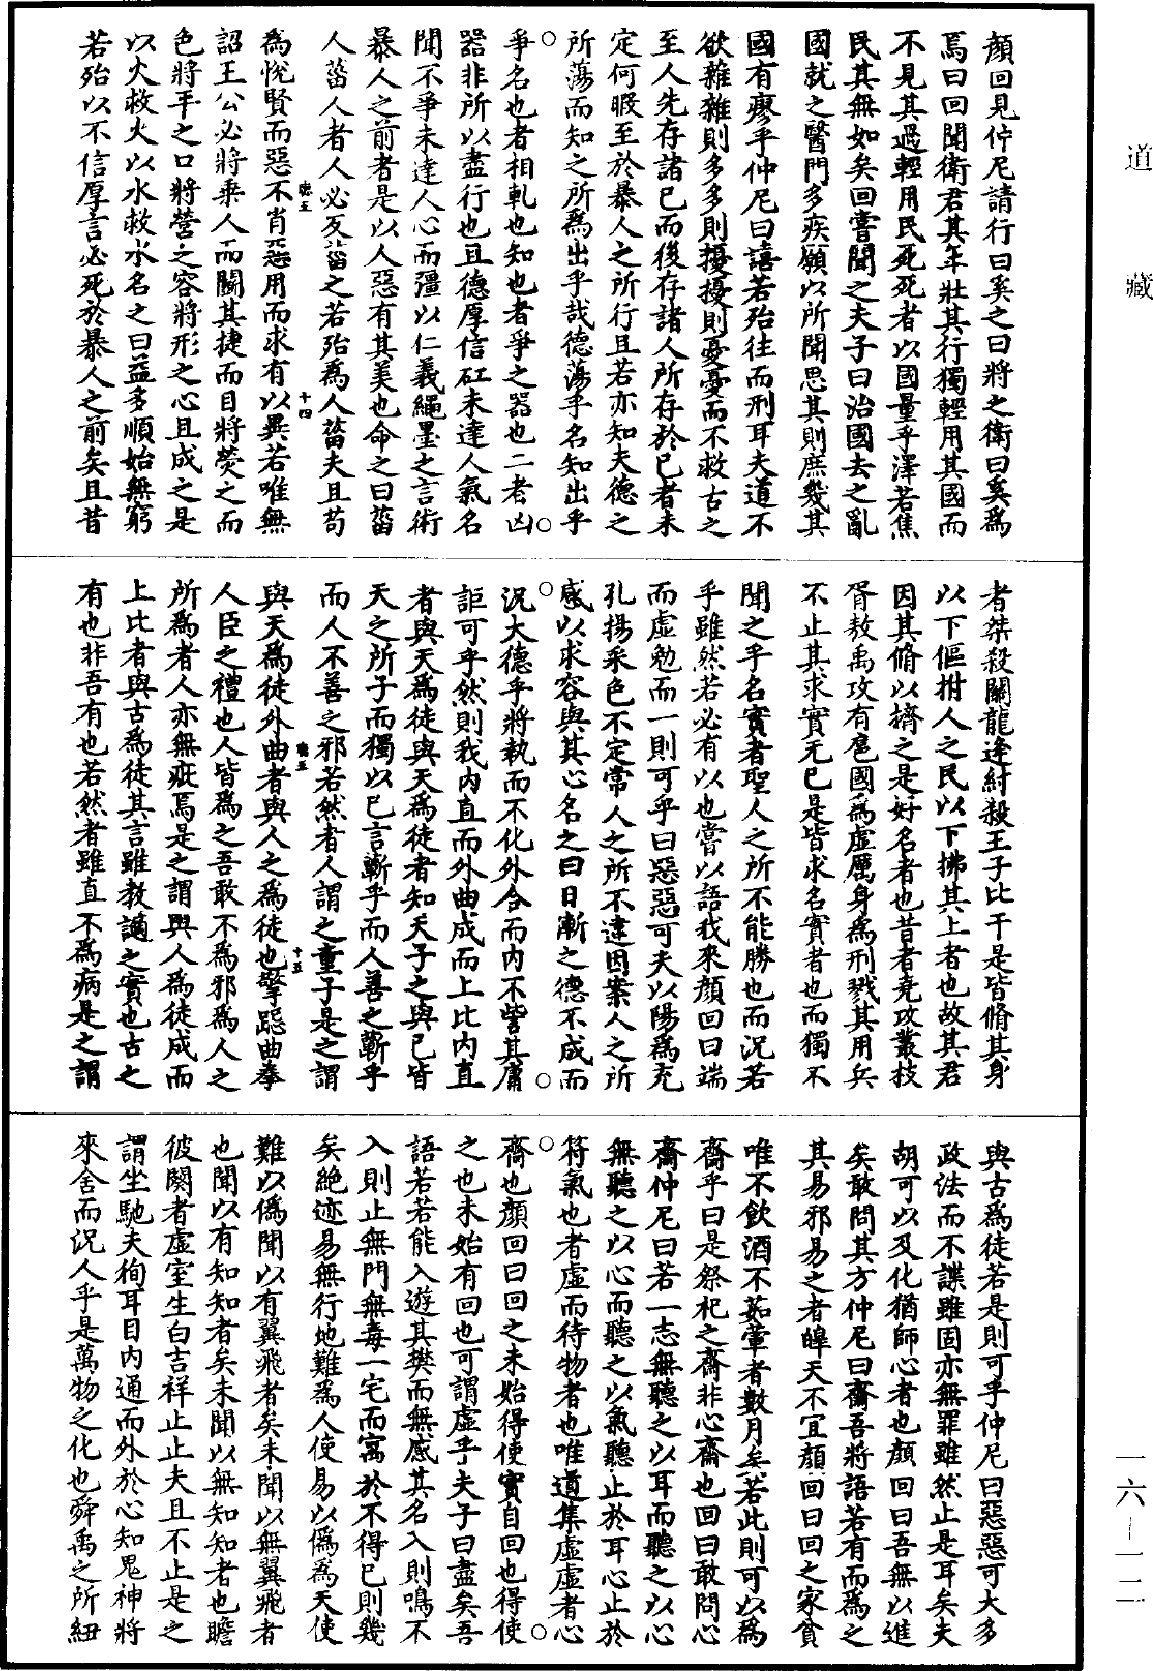 道藏
顏回見仲尼請行曰奚之曰將之衛曰奚為
焉曰回聞衛君其年壯其行獨輕用其國而
不見其過輕用民死死者以國量乎澤若焦
民其無如矣回嘗聞之夫子曰治國去之亂
國就之醫門多疾願以所聞思其則庶幾其
國有瘳乎仲尼曰譆若殆往而刑耳夫道不
欲雜雜則多多則擾擾則憂憂而不救古之
至人先存諸已而後存諸人所存於已者未
定何暇至於暴人之所行且若亦知夫德之
所蕩而知之所為出乎哉德蕩乎名知出乎
爭名也者相軋也知也者爭之器也二者凶
器非所以盡行也且德厚信矼未達人氣名
聞不爭未達人心而彊以仁義繩墨之言術
暴人之前者是以人惡有其美也命之曰菑
人菑人者人必反菑之若殆為人菑夫且苟
為悅賢而惡不肖惡用而求有以異若唯無
詔王公必將乘人而鬭其捷而目將熒之而
色將平之口將營之容將形之心且成之是
以火救火以水救水名之曰益多順始無窮
若殆以不信厚言必死於暴人之前矣且昔
十四
者桀殺關龍逢紂殺王子比干是皆脩其身
以下傴拊人之民以下拂其上者也故其君
因其脩以擠之是好名者也昔者堯攻叢枝
胥敖禹攻有扈國為虛厲身為刑戮其用兵
不止其求實无已是皆求名實者也而獨不
聞之乎名實者聖人之所不能勝也而況若
乎雖然若必有以也嘗以語我來顏回曰端
而虛勉而一則可乎曰惡惡可夫以陽為充
孔揚采色不定常人之所不違因案人之所
感以求容與其心名之曰日漸之德不成而
況大德乎將執而不化外合而內不訾其庸
詎可乎然則我內直而外曲成而上比內直
者與天為徒與天為徒者知天子之與已皆
天之所子而獨以已言蘄乎而人善之蘄乎
而人不善之邪若然者人謂之童子是之謂
與天為徒外曲者與人之為徒也擎跽曲拳
人臣之禮也人皆為之吾敢不為邪為人之
所為者人亦無疵焉是之謂與人為徒成而
上比者與古為徒其言雖教讁之實也古之
有也非吾有也若然者雖直不為病是之謂
十五
與古為徒若是則可乎仲尼曰惡惡可大多
政法而不諜雖固亦無罪雖然止是耳矣夫
胡可以及化猶師心者也顏回曰吾無以進
矣敢問其方仲尼曰齋吾將語若有而為之
其易邪易之者皞天不宜顏回曰回之家貧
唯不飲酒不茹葷者數月矣若此則可以為
齋乎曰是祭祀之齋非心齋也回曰敢問心
齋仲尼曰若一志無聽之以耳而聽之以心
無聽之以心而聽之以氣聽止於耳心止於
符氣也者虛而待物者也唯道集虛虛者心
齋也顏回曰回之未始得使實自回也得使
之也未始有回也可謂虛乎夫子曰盡矣吾
語若若能入遊其樊而無感其名入則鳴不
入則止無門無毒一宅而寓於不得已則幾
矣絕迹易無行地難為人使易以偽為天使
難以偽聞以有翼飛者矣未聞以無翼飛者
也聞以有知知者矣未聞以無知知者也瞻
彼闋者虛室生白吉祥止止夫且不止是之
謂坐馳夫徇耳目內通而外於心知鬼神將
來舍而況人乎是萬物之化也舜禹之所紐
一六—一一二